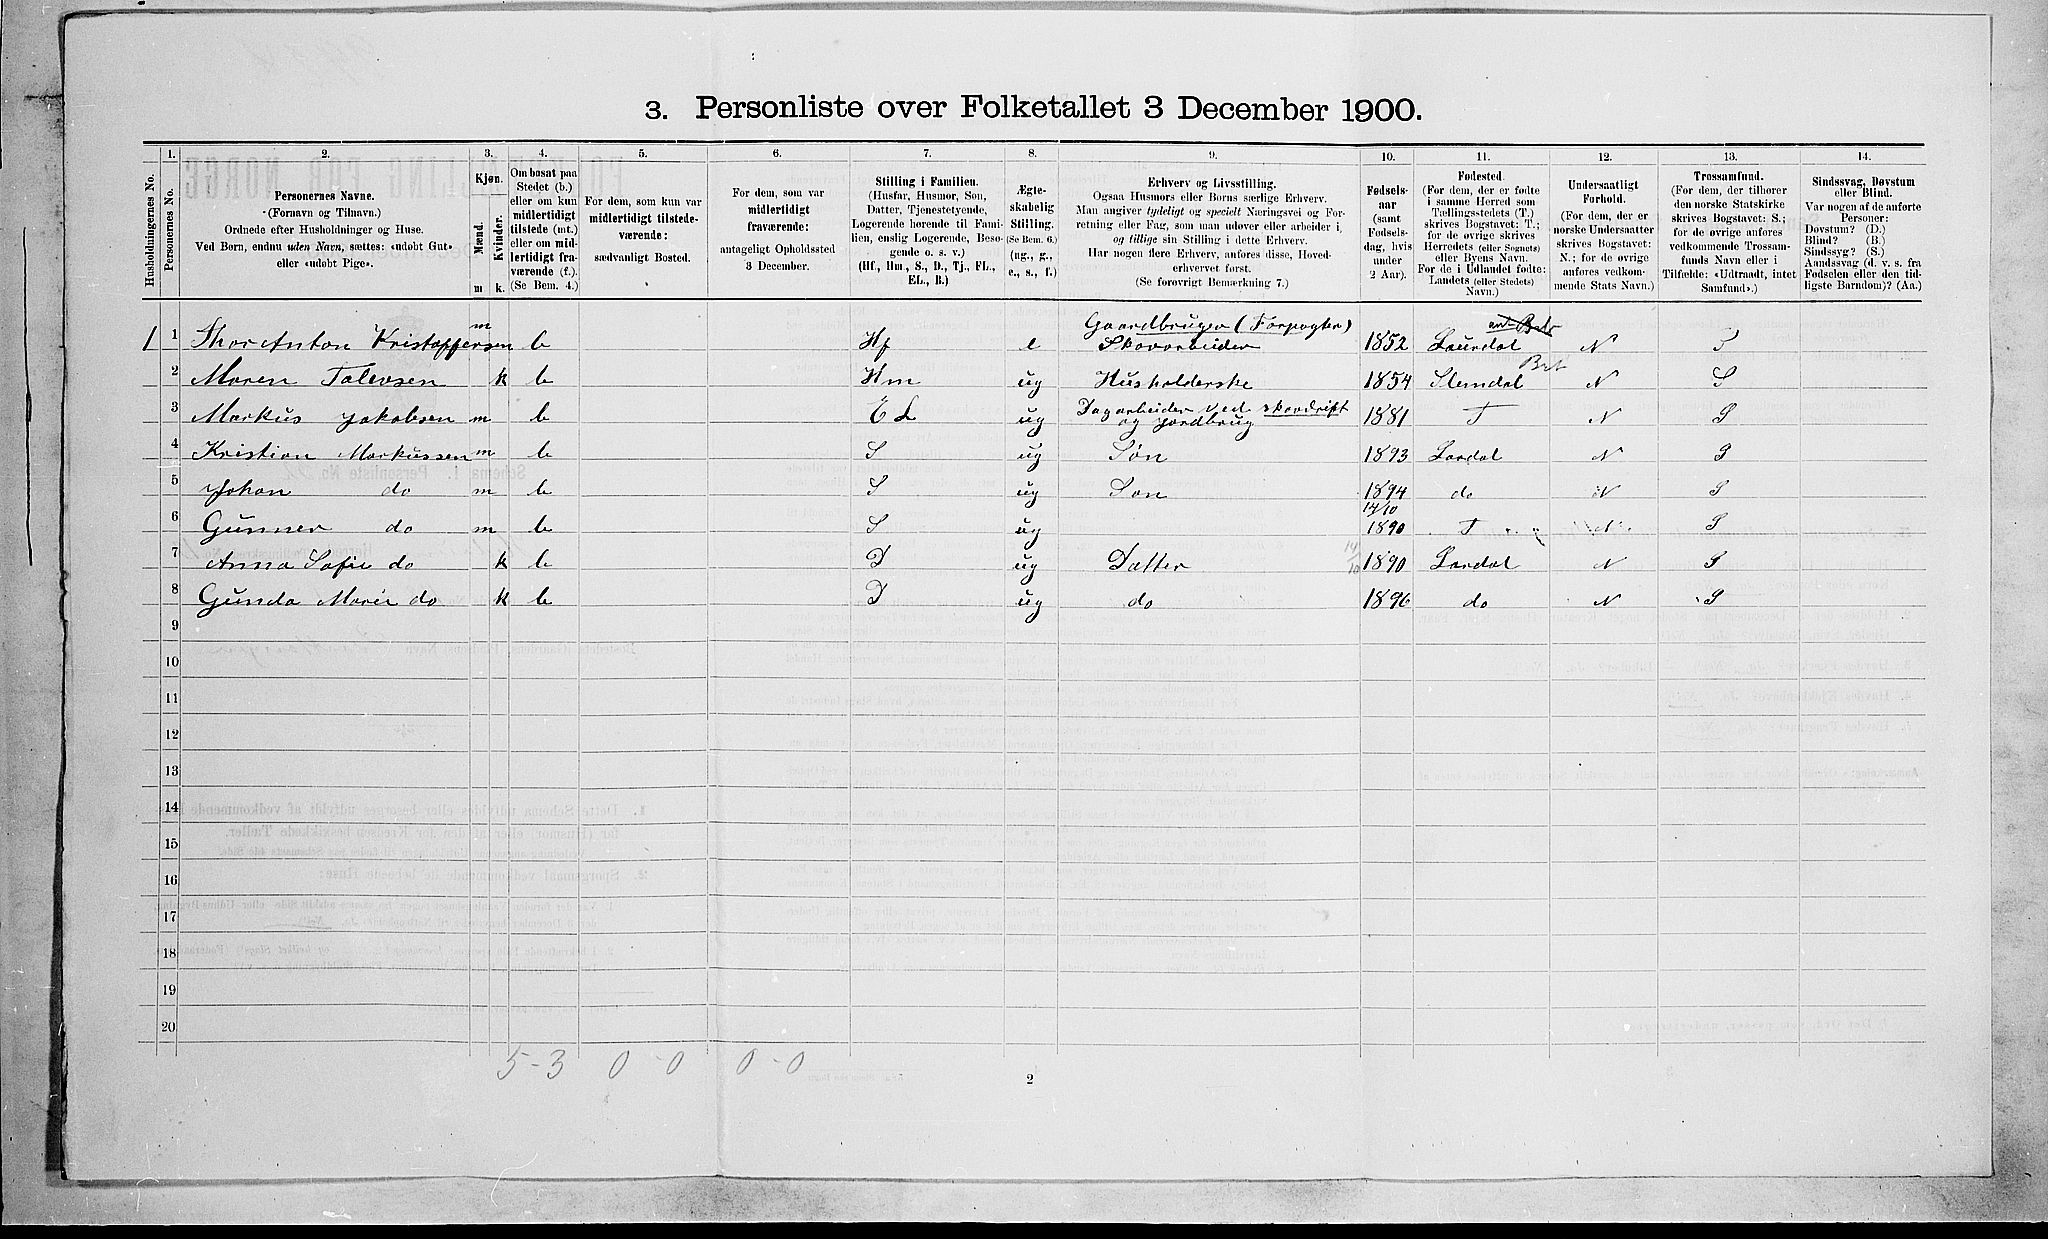 3. Personliste over Folketallet 3 December 1900.
1. 2. 3. 4. 5. 6. 7. 8. 9. 10. 11. 12. 13. 14.
Husholdningernes No.
Personernes No.
Personernes Navne.
(Fornavn og Tilnavn.)
Ordnede efter Husholdninger og Huse.
Ved Børn, endnu uden Navn, sættes: «udøbt Gut»
eller «udøbt Pige».
Kjøn.
Mænd. Kvinder.
m k.
Om bosat paa
Stedet (b.)
eller om kun
midlertidigt
tilstede (mt.)
eller om mid-
lertidigt fra-
værende (f.).
(Se Bem. 4.)
For dem, som kun var
midlertidigt tilstede-
værende:
sædvanligt Bosted.
For dem, som var
midlertidigt
fraværende:
antageligt Opholdssted
3 December.
Stilling i Familien.
(Husfar, Husmor, Søn,
Datter, Tjenestetyende,
Logerende hørende til Fami-
lien, enslig Logerende, Besø-
gende o. s. v.)
(Hf., Hm., S., D., Tj., FL.,
EL., B.)
Ægte-
skabelig
Stilling.
(Se Bem. 6.)
(ug., g.,
e., s., f.)
Erhverv og Livsstilling.
Ogsaa Husmors eller Børns særlige Erhverv.
Man angiver tydeligt og specielt Næringsvei og For-
retning eller Fag, som man udøver eller arbeider i,
og tillige sin Stilling i dette Erhverv.
Har nogen flere Erhverv, anføres disse, Hoved-
erhvervet først.
(Se forøvrigt Bemærkning 7.)
Fødsels-
aar
(samt
Fødsels-
dag, hvis
under
2 Aar).
Fødested.
(For dem, der er fødte
i samme Herred som
Tællingsstedets (T.)
skrives Bogstavet: T.;
for de øvrige skrives
Herredets (eller Sognets)
eller Byens Navn.
For de i Udlandet fødte:
Landets (eller Stedets)
Navn.)
Undersaatligt
Forhold.
(For dem, der er
norske Undersaatter
skrives Bogstavet:
N.; for de øvrige
anføres vedkom-
mende Stats Navn.)
Trossamfund.
(For dem, der tilhører
den norske Statskirke
skrives Bogstavet: S.;
for de øvrige anføres
vedkommende Trossam-
funds Navn eller i
Tilfælde: «Udtraadt, intet
Samfund».)
Sindssvag, Døvstum
eller Blind.
Var nogen af de anførte
Personer:
Døvstum? (D.)
Blind? (B.)
Sindssyg? (S.)
Aandssvag (d. v. s. fra
Fødselen eller den tid-
ligste Barndom)? (Aa.)
1 1 Thor Anton Kristoffersen m b Hf e Gaardbruger (Forpagter) Skovarbeider 1852 Laurdal N S
2 Maren Talevsen k b Hm ug Husholderske 1854 Slemdal Brt N S
3 Markus Jakobsen m b EL ug Dagarbeider ved skovdrift og jordbrug 1881 T N S
4 Kristian Markussen m b S ug Søn 1893 Lardal N S
5 Johan do m b S ug Søn 1894 do N S
6 Gunner do m b S ug 14/10 1890 T N S
7 Anna Sofie do k b D ug Datter 14/10 1890 Lardal N S
8 Gunda Marie do k b D ug do 1896 do N S
9
10
11
12
13
14
15
16
17
18
19
20
5 - 3 0 - 0 0 - 0
2